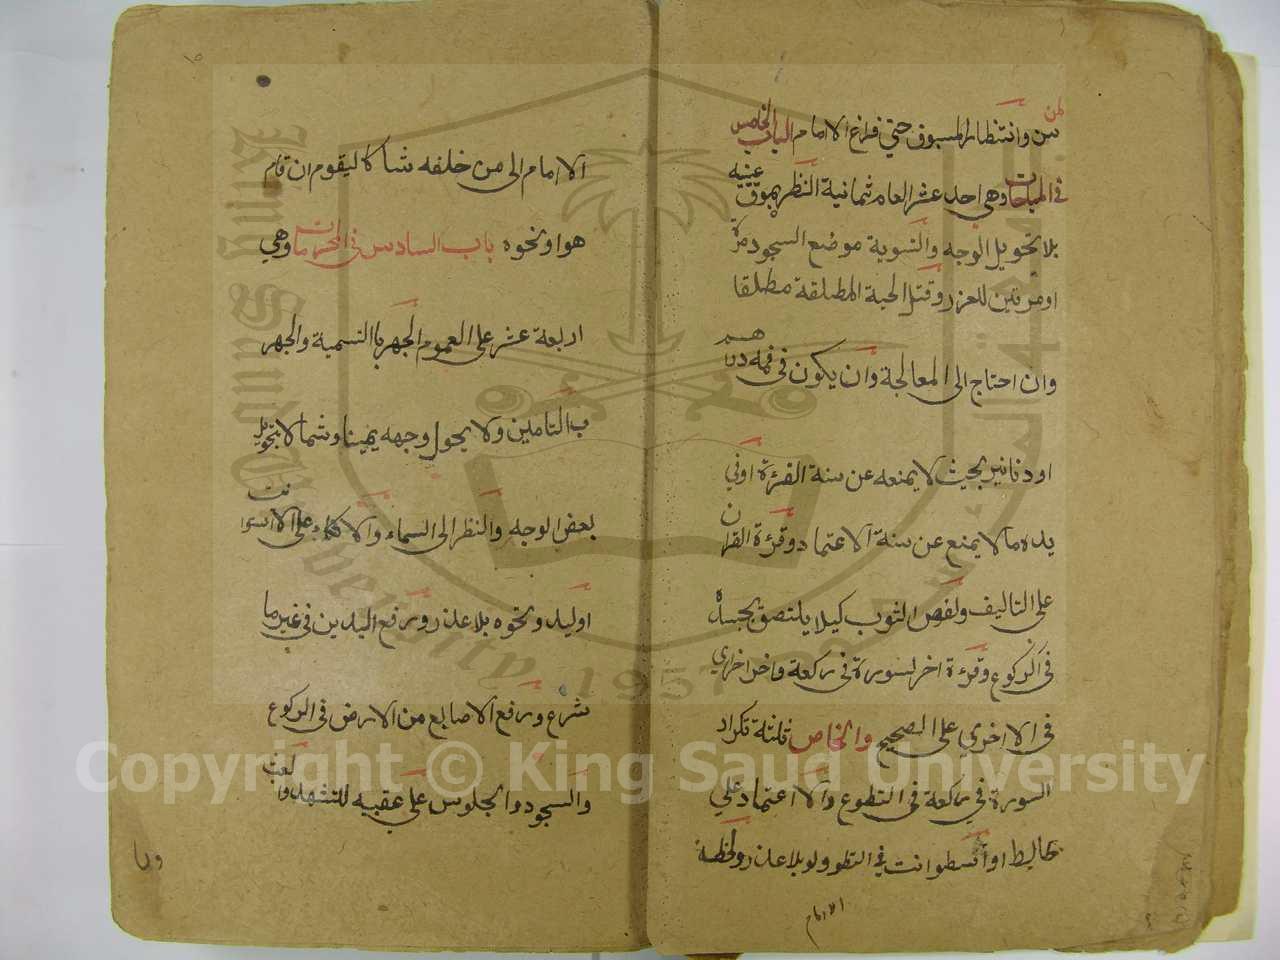 من وانتظار المسبوق حتي فراغ الامام الباب الخامس
في المباحات وهي احد عشر العام ثمانية النظر بموق عينيه
بلا تحويل الوجه والتسوية موضع السجود مرة
او مرتين للعذر وقتل الحية المطلقة مطلقا
وان احتاج الى المعالجة وان يكون في فمه دراهم
او دنانير بحيث لا يمنعه عن سنة القرءة او في
يده ما لا يمنع عن سنة الاعتماد وقرءة القران
على التاليف ونفض الثوب كيلا يلتصق بجسده
في الركوع وقرءة اخر لسورة في ركعة واخر اخري
في الاخري على الصحيح والخاص ثلثة تكرار
السورة في ركعة في التطوع والاعتماد علي
حايط او اسطوانت في التطوع ولو بلا عذر ولحظة
الامام
١٥
الامام الى من خلفه شاكا ليقوم ان قام
هو او نحوه باب السادس في المحرمات وهي
اربعة عشر على العموم الجهر باالتسمية والجهر
ب التامين ولا يحول وجهه يمينا وشمالا بتحويل
بعض الوجه والنظر الى السماء والاتكاء على الاسطوانت
او ليد ونحوه بلا عذر ورفع اليدين في غير ما
شرع ورفع الاصابع من الارض في الركوع
والسجود والجلوس على عقبيه للتشهد والعبث
Copyright © King Saud University
King Saud University
1957
جامعة الملك سعود